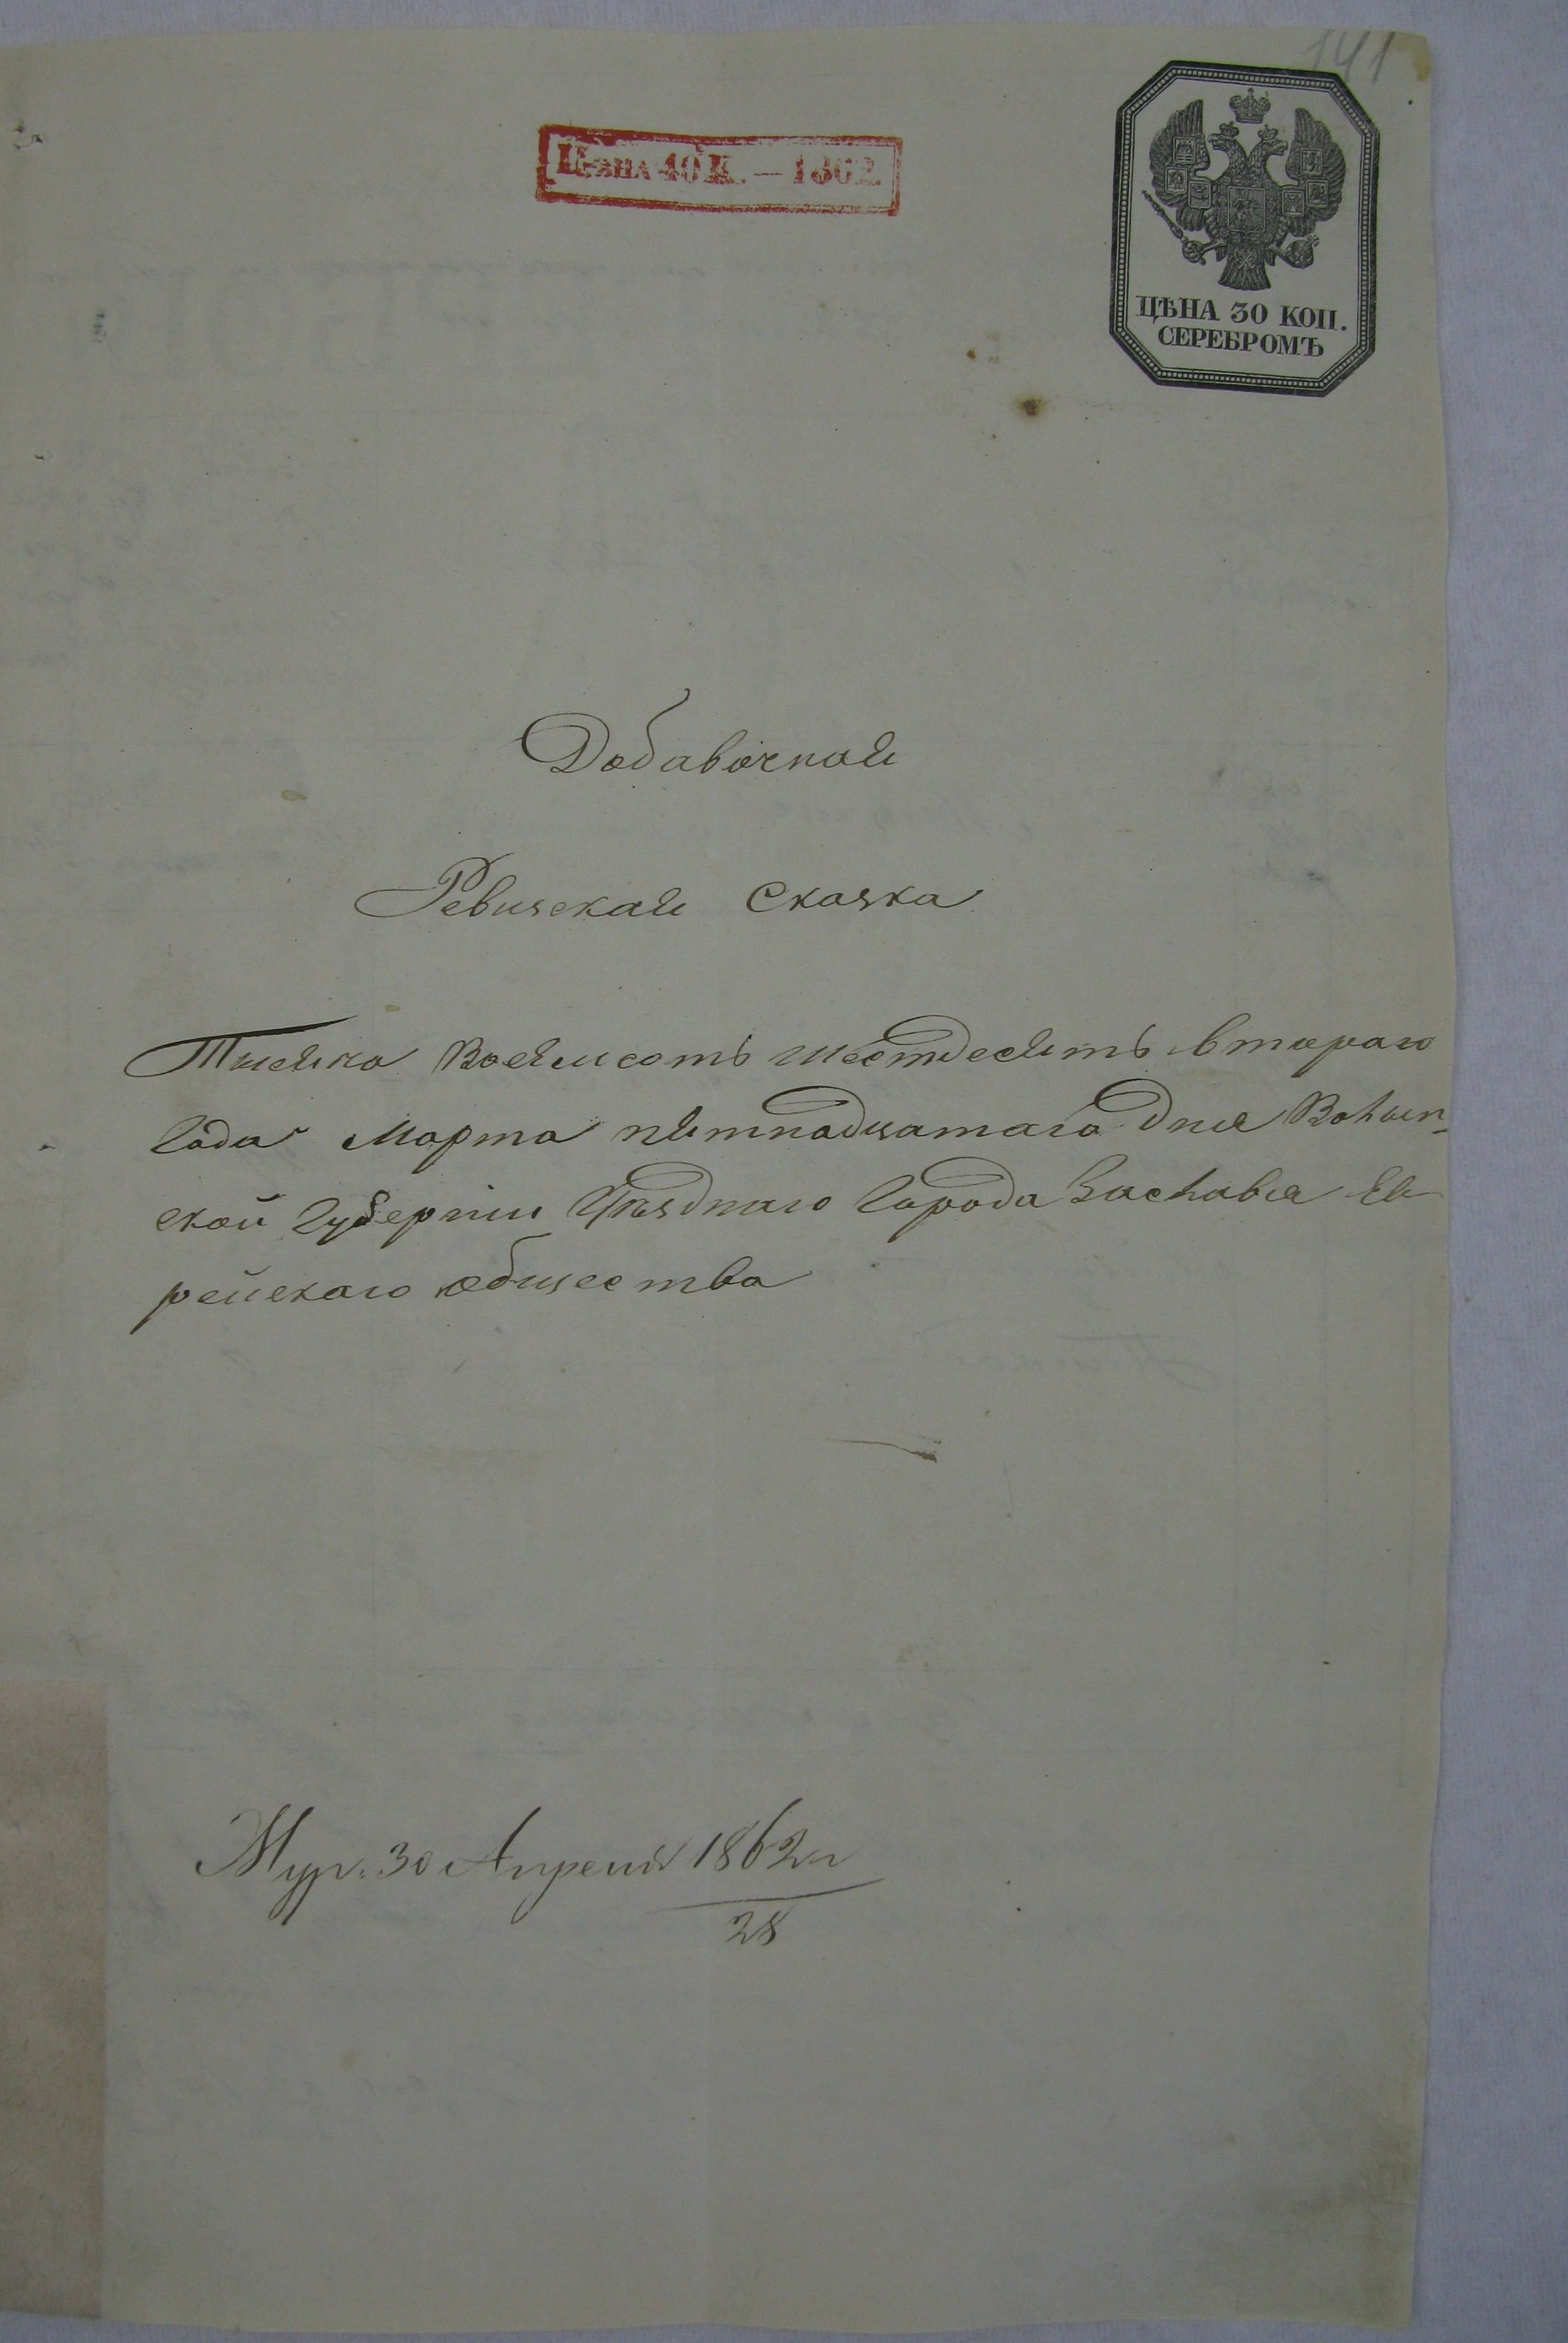 141
Цѣна 40 К. — 1862
ЦѢНА 30 КОП.
СЕРЕБРОМЪ
Добавочная
Ревизская Сказка
Тысяча Восемсотъ шестдесятъ втораго
Года Марта пятнадцатаго дня Волын-
ской Губерніи Уѣзднаго Города Заславля Ев
рейскаго общества
Жур. 30 Апреля 1862 г
28